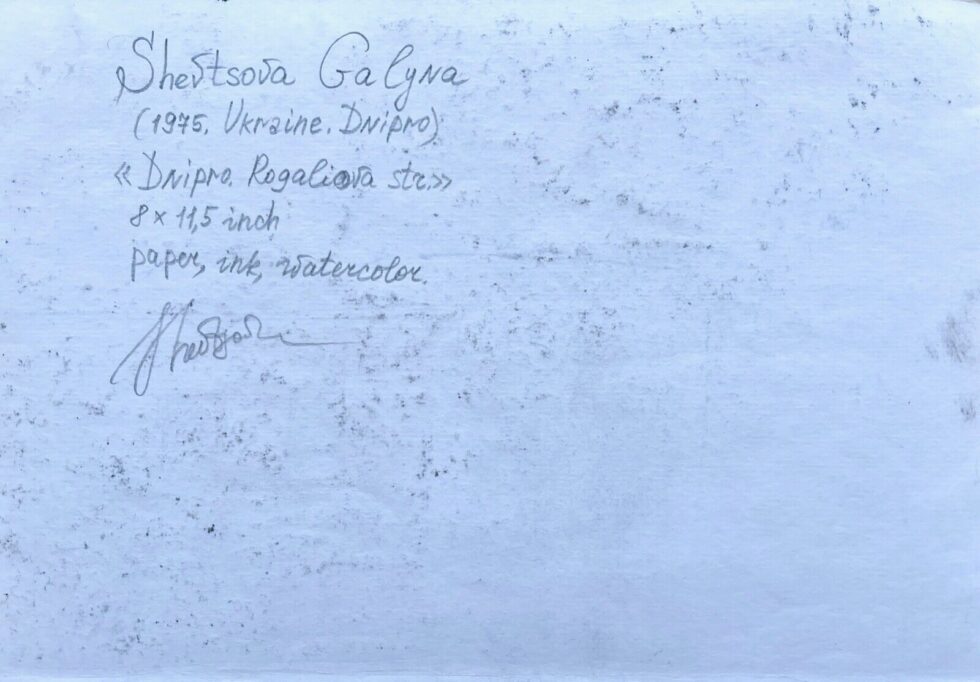 Shevtsova Galyna
(1975. Ukraine. Dnipro)
«Dnipro. Rogaliova str.»
8 × 11,5 inch
paper, ink, watercolor.
Shevtsova